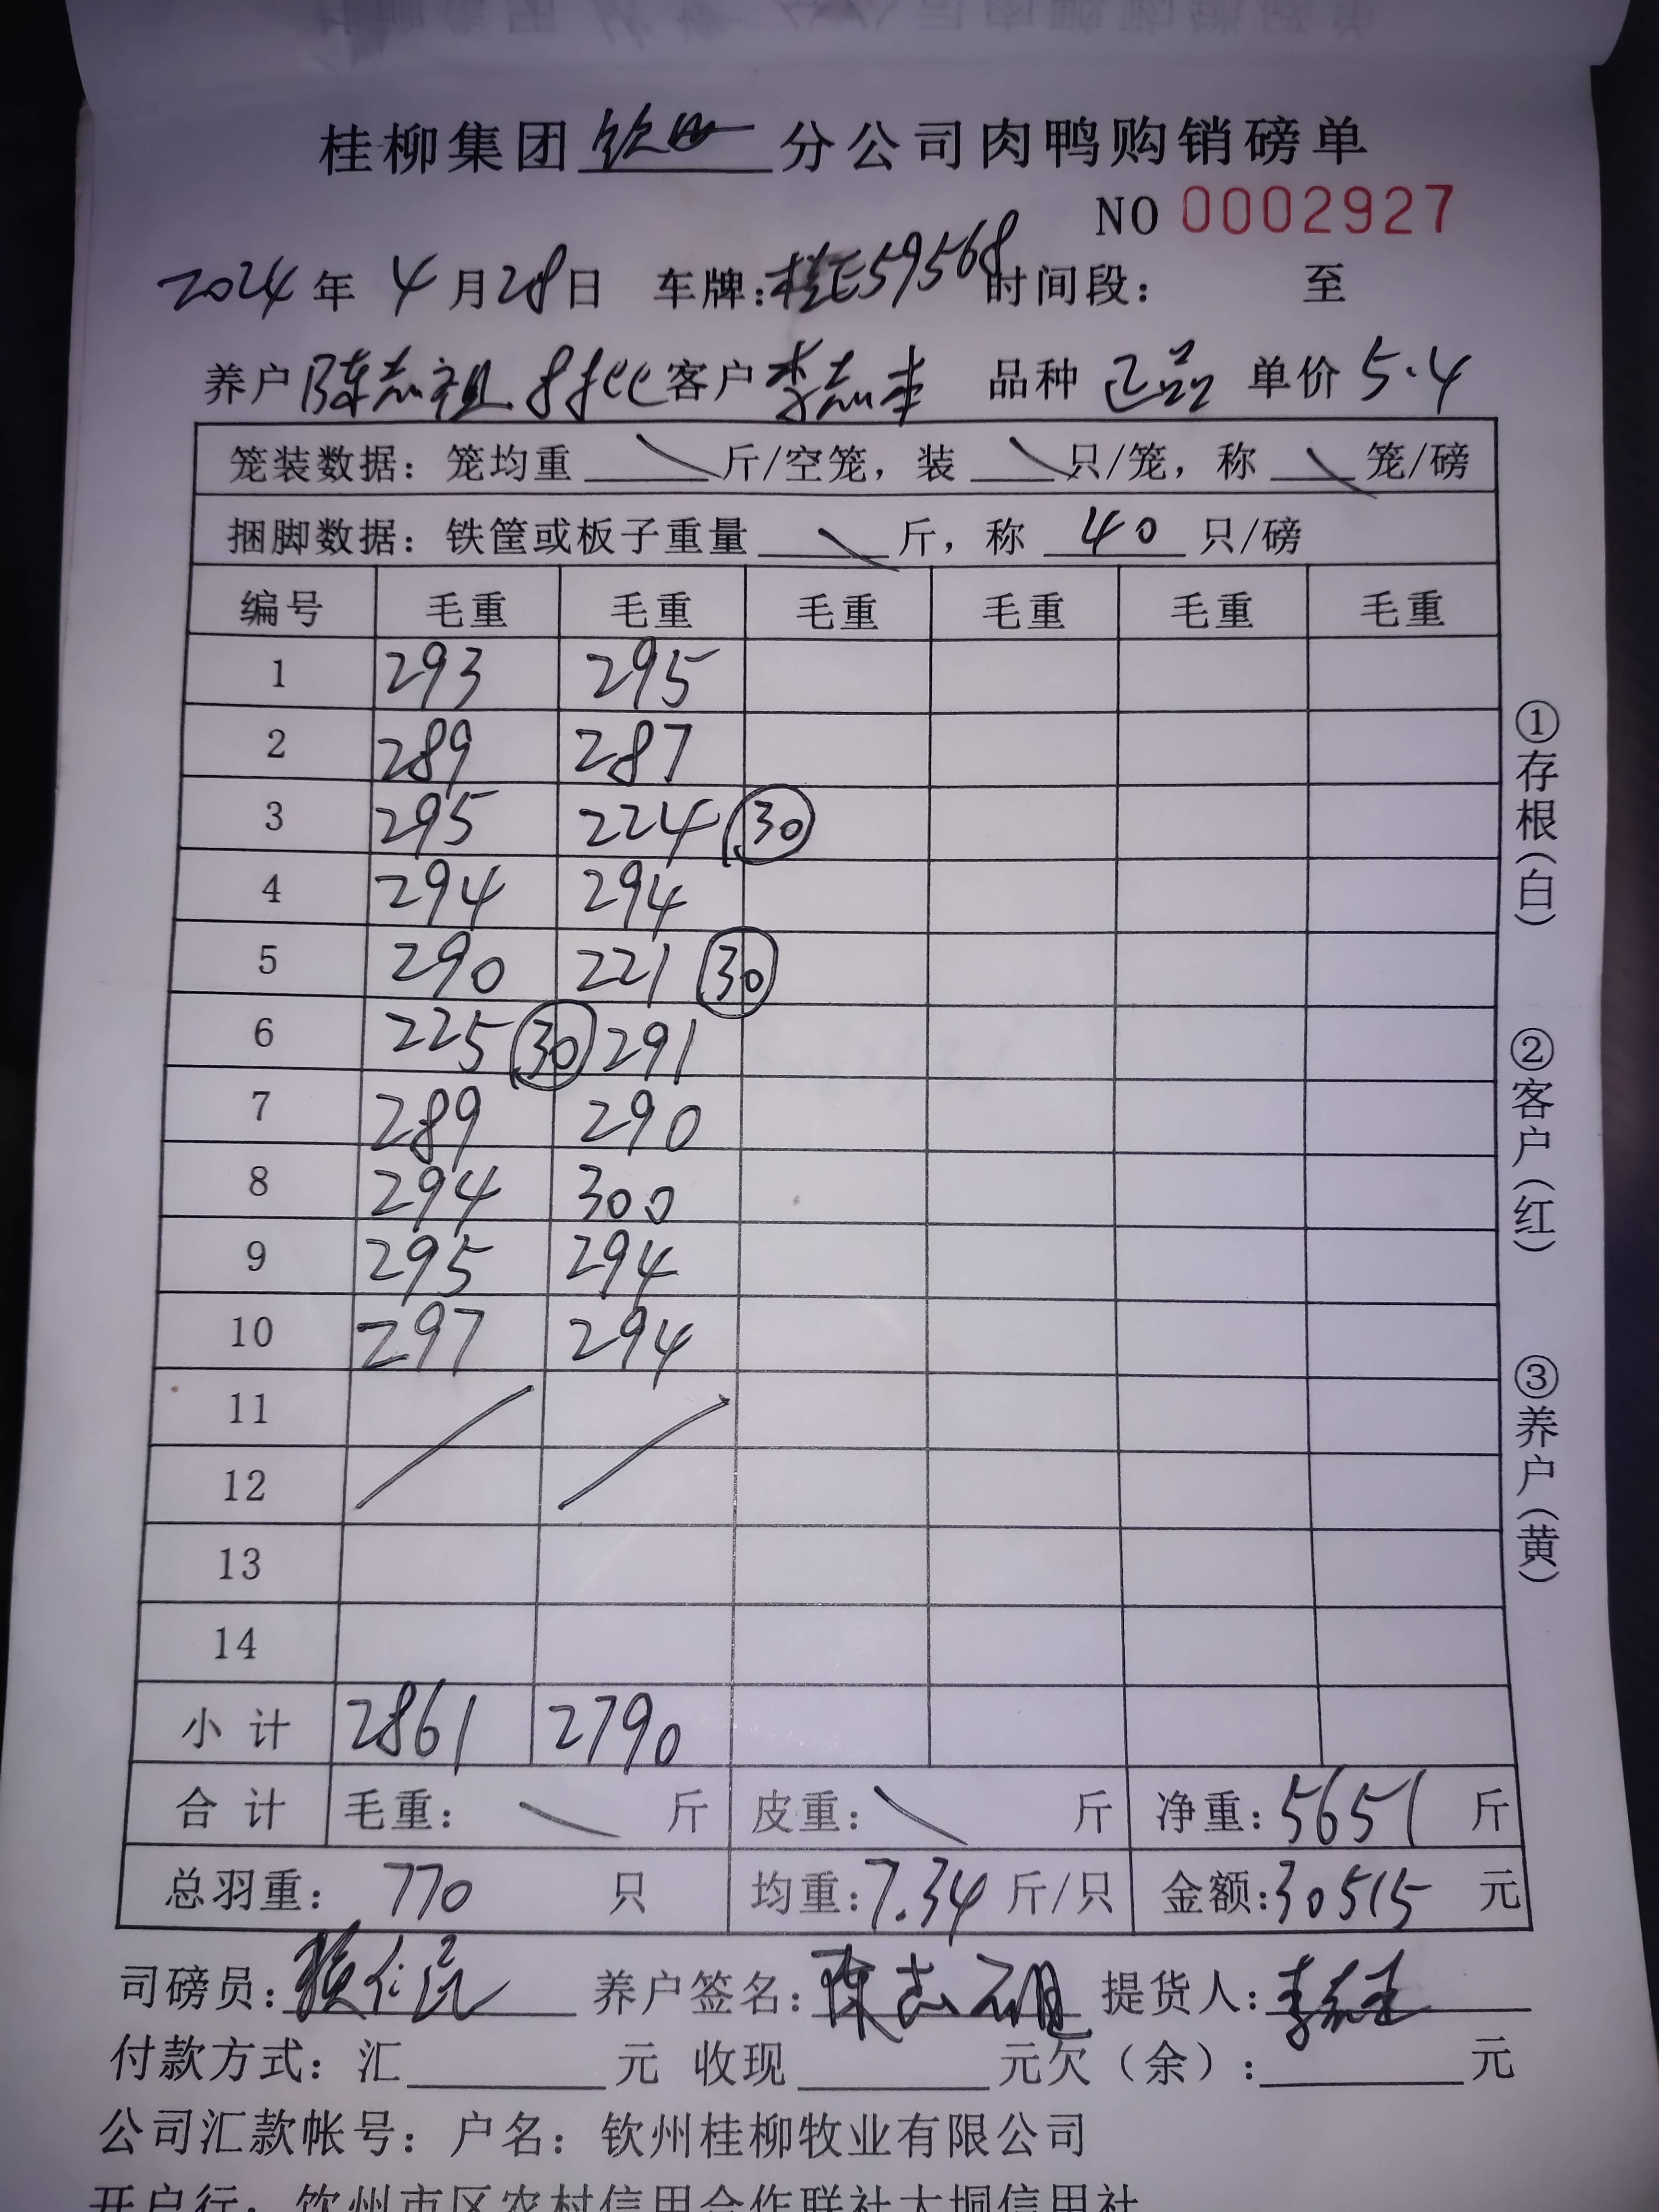 桂柳集团钦州分公司肉鸭购销磅单
NO 0002927
2024年 4月28日 车牌:桂E59568 时间段: 至
养户 陈志祖 客户 李志丰 品种 正品 单价 5.4
笼装数据：笼均重 斤/空笼，装 只/笼，称 笼/磅
捆脚数据：铁筐或板子重量 斤，称 40 只/磅
编号 毛重 毛重 毛重 毛重 毛重 毛重
1 293 295
2 289 287
3 295 224 30
4 294 294
5 290 221 30
6 225 30 291
7 289 290
8 294 300
9 295 294
10 297 294
11
12
13
14
小计 2861 2790
合计 毛重： 斤 皮重： 斤 净重：5651 斤
总羽重： 770 只 均重：7.34 斤/只 金额：30515 元
司磅员： 养户签名：陈志祖 提货人：
付款方式：汇 元 收现 元欠（余）： 元
公司汇款帐号：户名：钦州桂柳牧业有限公司
开户行：钦州市区农村信用合作联社大垌信用社
①存根（白）
②客户（红）
③养户（黄）